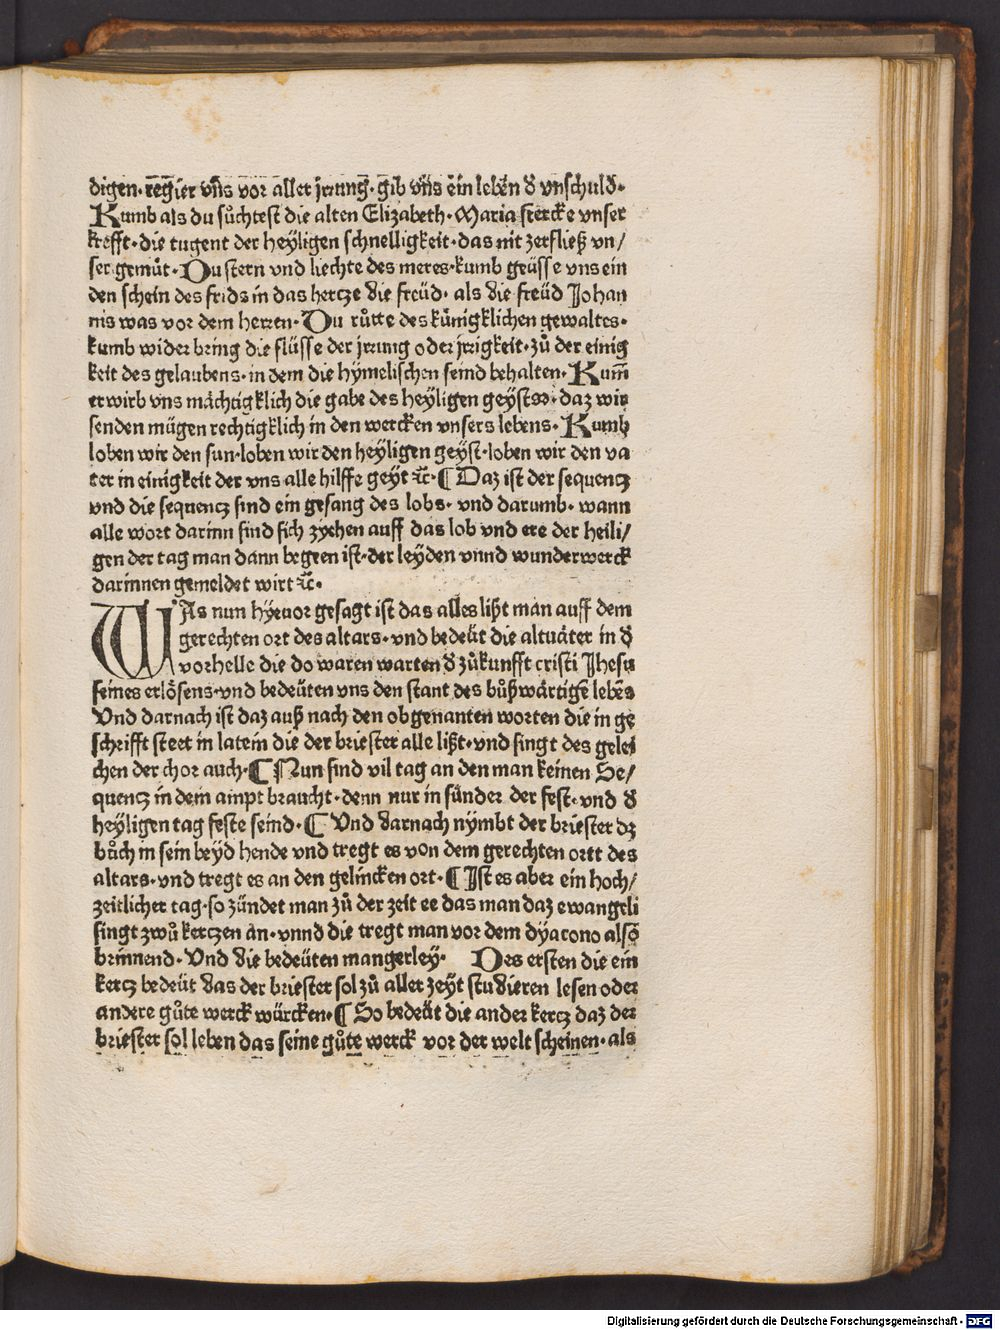 digen· regier vñs vor aller jrrunḡ· gib vñs ein lebēn d vnschuld·
Kumb als du sůchtest die alten Elizabeth· Maria stercke vnser
krefft· die tugent der heÿligen schnelligkeit· das nit zerfließ vn/
ser gemůt· Du stern vnd liechte des meres· kumb geüsse vns ein
den schein des frids in das hertcze die freüd· als die freüd Johan
nis was vor dem herren· Du růtte des künigklichen gewaltes·
kumb wider bring die flüsse der jrrung oder jrrigkeit· zů der einig
keit des gelaubens· in dem die hÿmelischen seind behalten· Kum̄
erwirb vns mächtigklich die gabe des heÿligen geÿstꝫ· daz wir
senden mügen rechtigklich in den wercken vnsers lebens· Kumb
loben wir den sun· loben wir den heÿligen geÿst· loben wir den va
ter in einigkeit der vns alle hilffe geyt ꝛc̄· ¶ Daz ist der sequencz
vnd die sequencz sind ein gesang des lobs· vnd darumb· wann
alle wort darinn sind sich zyehen auff das lob vnd ere der heili/
gen der tag man dann begeen ist· der leÿden vnnd wunderwerck
darinnen gemeldet wirt ꝛc̄·
WAs nun hÿeuor gesagt ist das alles lißt man auff dem
gerechten ort des altars· vnd bedeüt die altuäter in d
vorhelle die do waren warten d zůkunfft cristi Jhesu
seines erlösens· vnd bedeüten vns den stant des bůßwärtigē lebēs
Vnd darnach ist daz auß nach den obgenanten worten die in ge
schrifft steet in latein die der briester alle lißt· vnd singt des gelei
chen der chor auch· ¶ Nun sind vil tag an den man keinen Se/
quencz in dem ampt braucht· denn nur in sünder der fest· vnd d
heÿligen tag feste seind· ¶ Vnd darnach nÿmbt der briester dz
bůch in sein beÿd hende vnd tregt es von dem gerechten ortt des
altars· vnd tregt es an den gelincken ort· ¶ Jst es aber ein hoch/
zeitlicher tag· so zündet man zů der zeit ee das man daz ewangeli
singt zwů kerczen an· vnnd die tregt man vor dem dÿacono alsō
brinnend· Vnd die bedeüten mangerley· Des ersten die ein
kercz bedeüt das der briester sol zů aller zeÿt studieren lesen oder
andere gůte werck würcken· ¶ So bedeüt die ander kercz daz der
briester sol leben das seine gůte werck vor der welt scheinen· als
Digitalisierung gefördert durch die Deutsche Forschungsgemeinschaft - DFG